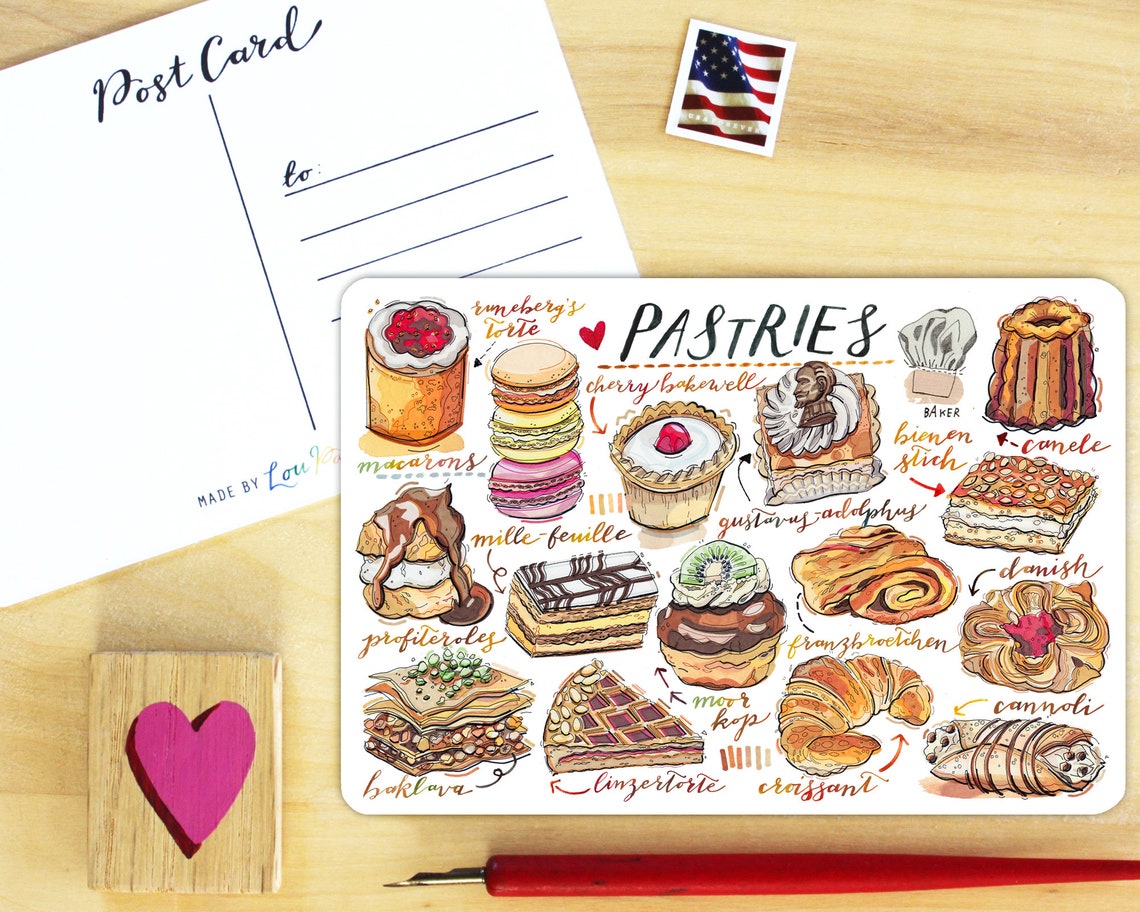 Post Card
to:
MADE BY Lou
USA FOREVER
PASTRIES
runeberg's
torte
macarons
cherry bakewell
gustavus-adolphus
BAKER
canele
bienen
stich
mille-feuille
profiteroles
moor
kop
franzbroetchen
danish
baklava
linzertorte
croissant
cannoli